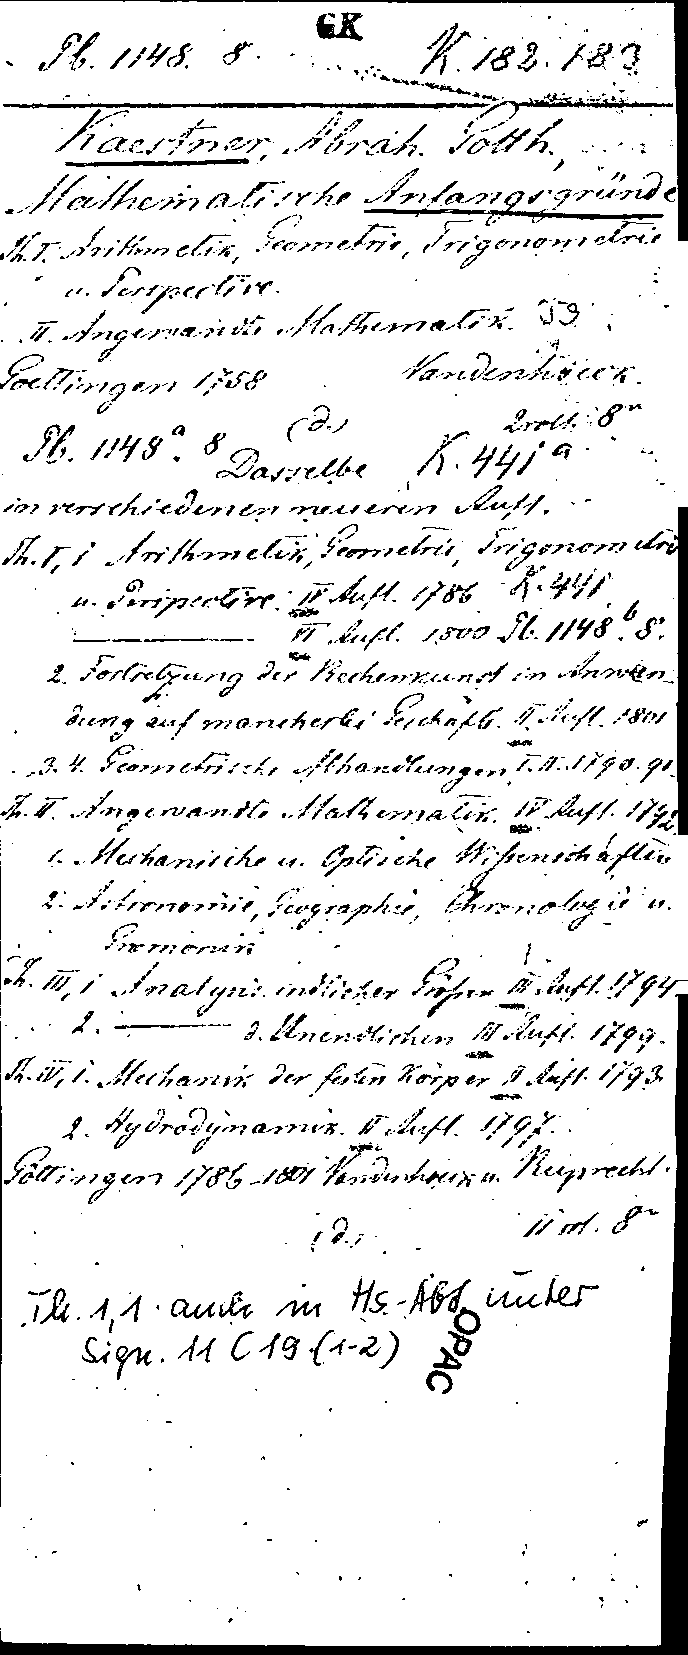 GK
Pb. 1148. 8. K. 182. 183
Kaestner, Abrah. Gotth.,
Mathematische Anfangsgründe
Th. I. Arithmetik, Geometrie, Trigonometrie
u. Perspective.
II. Angewandte Mathematik.
Goettingen 1758 Vandenhoeck.
(d.) 2 voll. 8°
Pb. 1148a. 8 Dasselbe K. 441a
in verschiedenen neueren Aufl.
Th. I, 1 Arithmetik, Geometrie, Trigonometrie
u. Perspective. IV Aufl. 1786 K. 441
——— VI Aufl. 1800 Pb. 1148b. 8.
2. Fortsetzung der Rechenkunst in Anwen-
dung auf mancherlei Geschäfte. II. Aufl. 1801
3. 4. Geometrische Abhandlungen I. II. 1790. 91.
Th. II. Angewandte Mathematik. IV Aufl. 1792
1. Mechanische u. Optische Wissenschaften
2. Astronomie, Geographie, Chronologie u.
Gnomonik
Th. III, 1 Analysis endlicher Größen III Aufl. 1794
2. ——— d. Unendlichen III Aufl. 1799.
Th. IV, 1. Mechanik der festen Körper II Aufl. 1793
2. Hydrodynamik. II Aufl. 1797.
Göttingen 1786–1801 Vandenhoeck u. Ruprecht.
(d.) 8°
Th. 1,1. auch in Hs.-Abt. unter
Sign. 11 C 19 (1-2)
OPAC